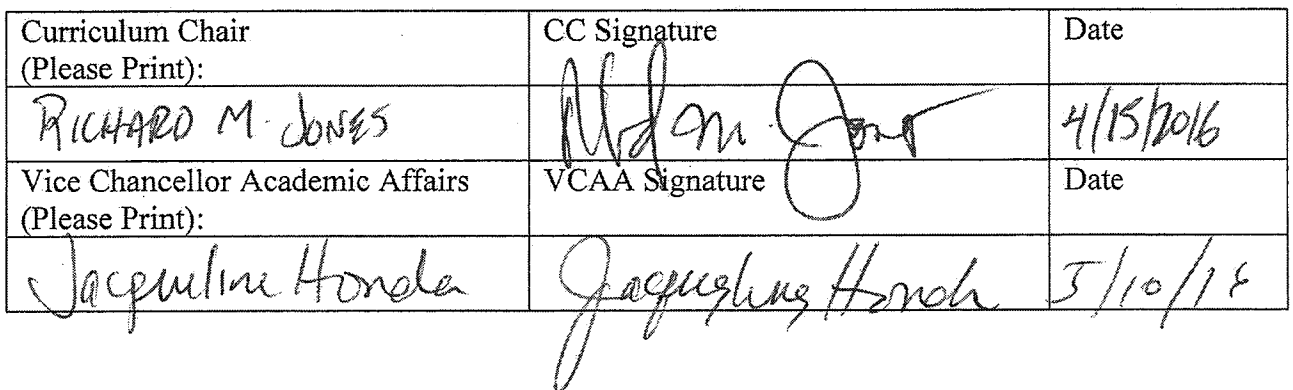 Curriculum Chair
(Please Print):
CC Signature
Date
RICHARD M. JONES
4/15/2016
Vice Chancellor Academic Affairs
(Please Print):
VCAA Signature
Date
Jacqueline Honda
Jacqueline Honda
5/10/16